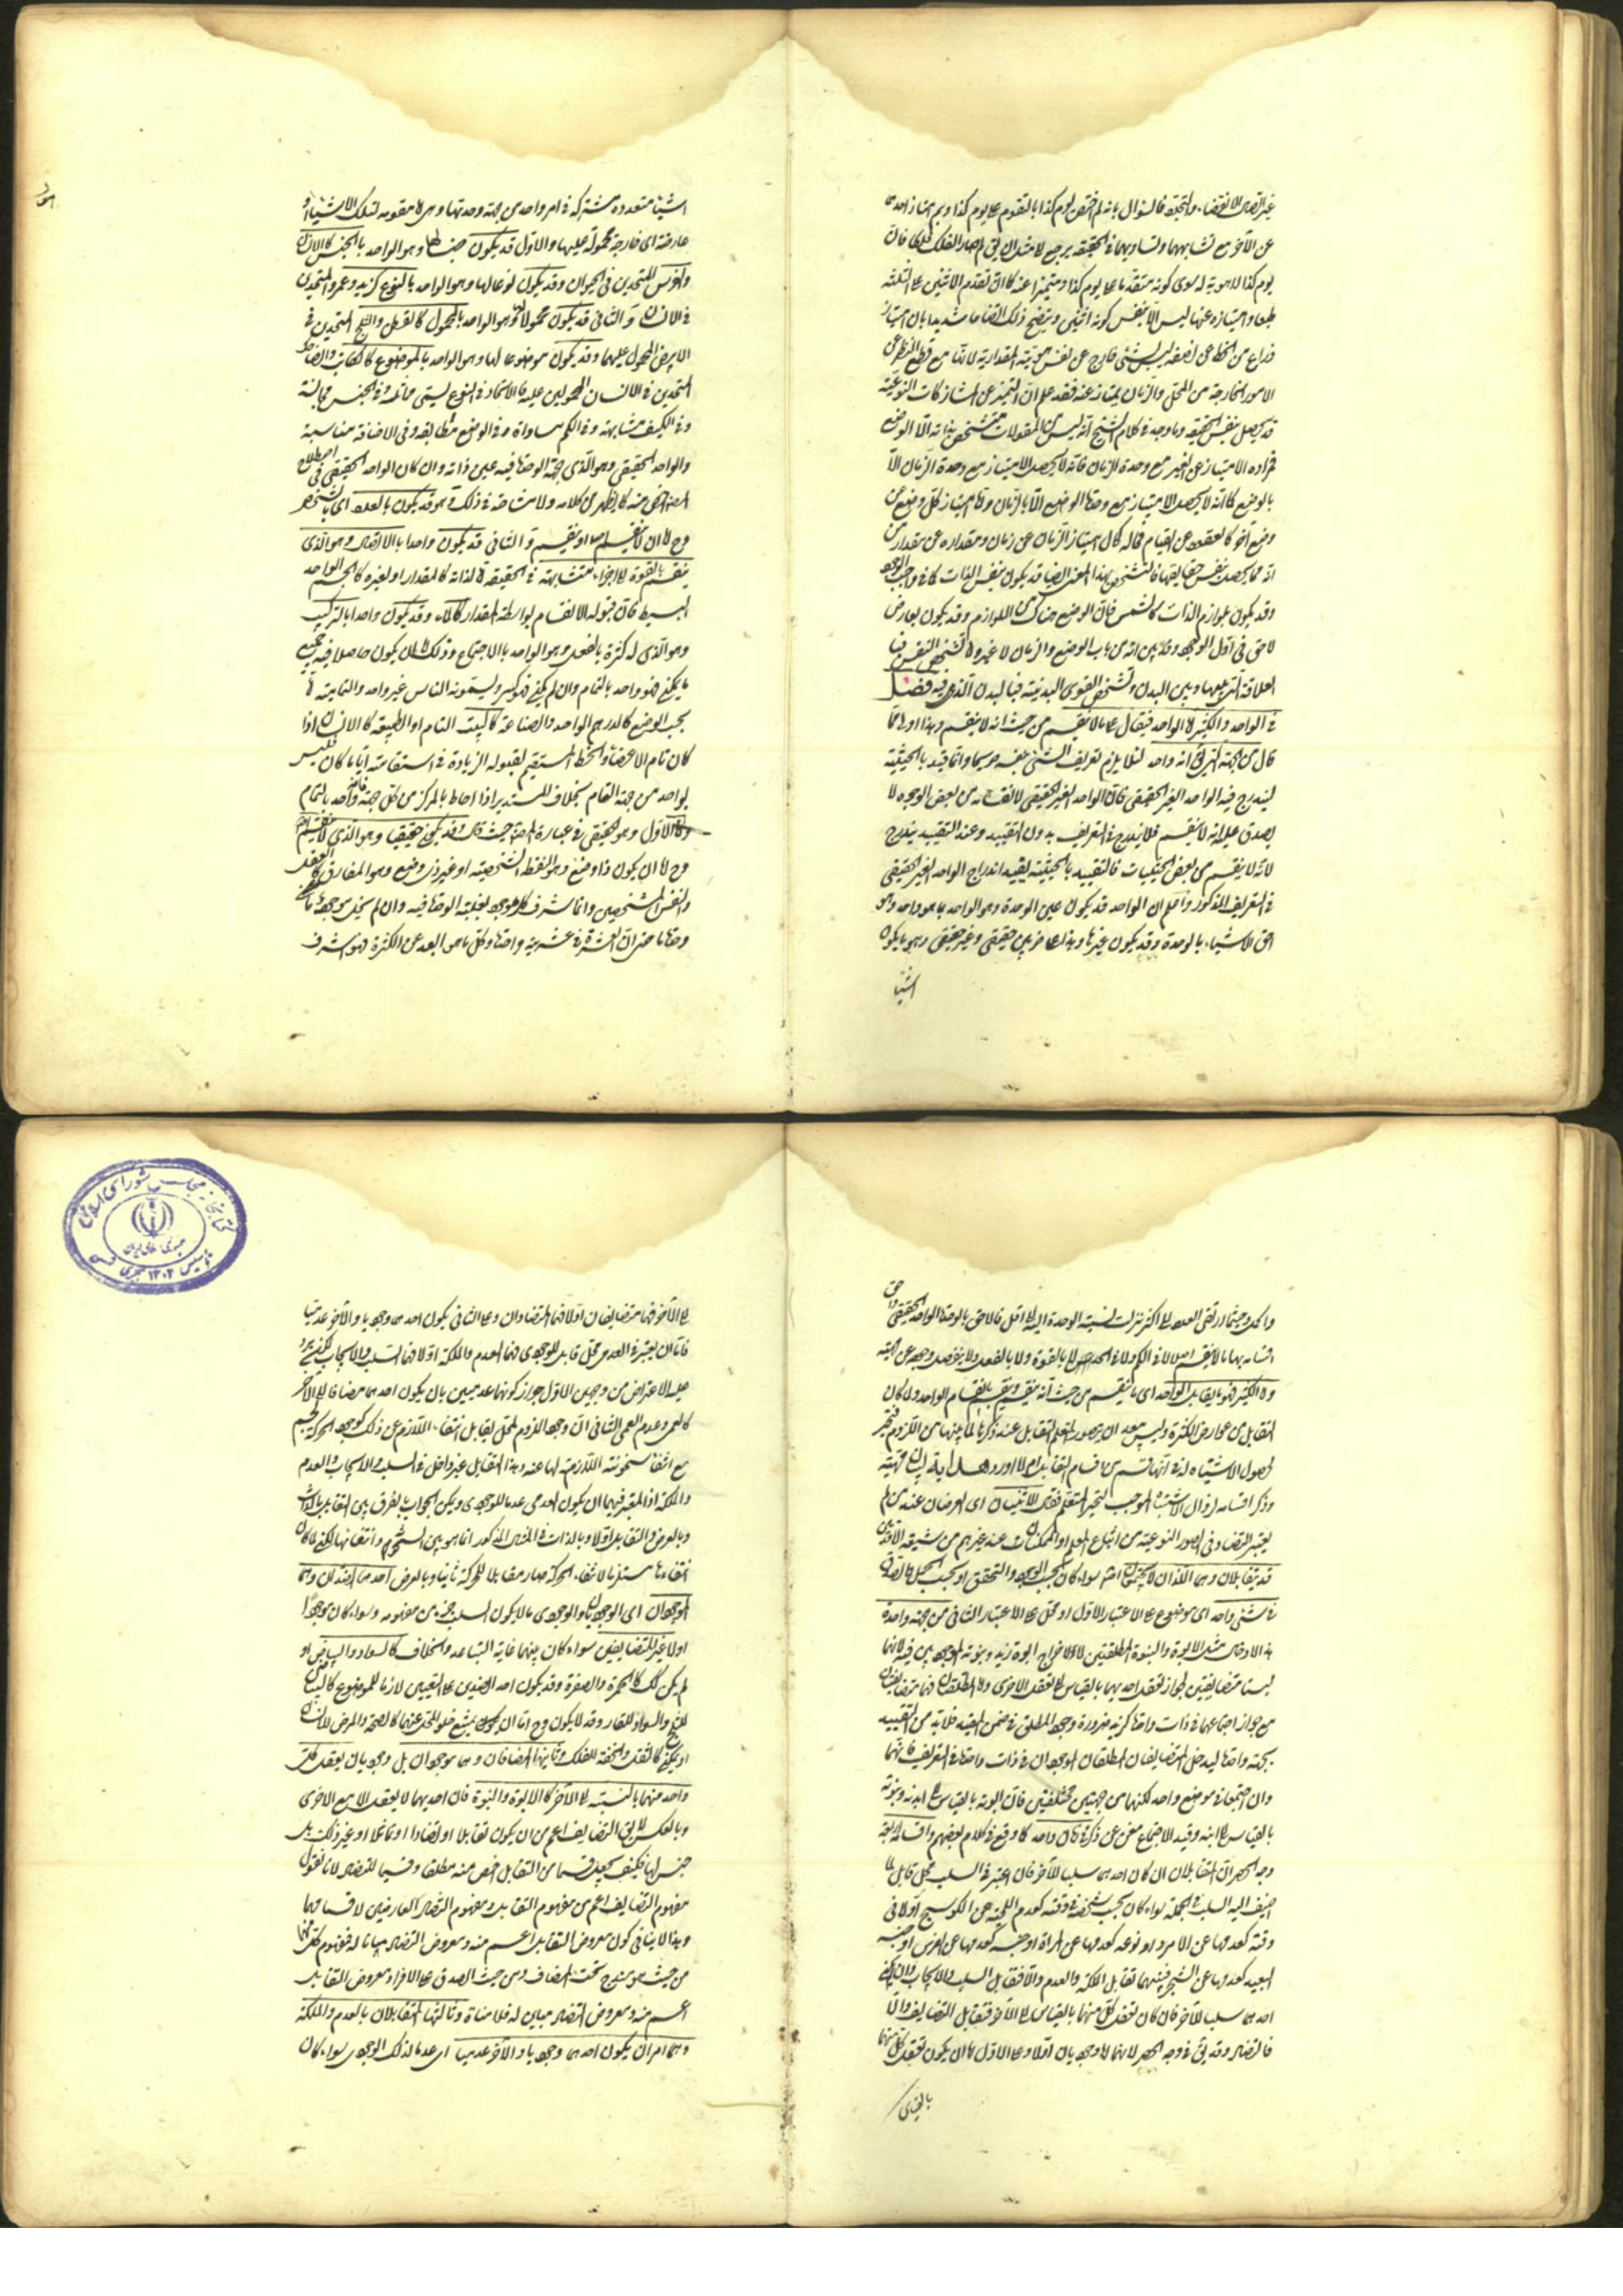 عن الآخر مع تشابههما وتساويهما في الحقيقة يرجع لا مثل ان يق لم صار الفلك فلكا فان
يوم كذا لا هوية له سوى كونه متقدما على يوم كذا ومتميزا عنه كما ان تقدم الاثنين على الثلثة
طبعا وامتيازه عنها ليس الا بنفس كونه اثنين ويتضح ذلك اتضاحا شديدا بان امتياز
ذراع من الخط عن نصفه ليس بشئ خارج عن نفس هويته المقدارية لانا مع قطع النظر عن
الامور الخارجة من المحل والزمان يمتاز عنه فقد علم ان التميز عن المشاركات النوعية
قد يحصل بنفس الحقيقة وما وجد في كلام الشيخ انه ليس من المقولات متشخص بذاته الا الوضع
فمراده الامتياز عن الغير مع وحدة الزمان فانه لا يحصل الامتياز مع وحدة الزمان الا
بالوضع كما انه لا يحصل الامتياز مع وحدة الوضع الا بالزمان واما امتياز كل وضع عن
انه مما يحصل بنفس حقايقها فالتشخص بهذا المعنى ايضا قد يكون بنفس الذات كما في واجب الوجود
وقد يكون بلوازم الذات كالشمس فان الوضع هناك من اللوازم وقد يكون بعارض
لاحق في اول الوجود وقد بين انه من باب الوضع والزمان لا غير واما تشخص النفس فبا
لعلاقة التي بينها وبين البدن وتشخص القوى البدنية فبالبدن الذي فيه فصل
في الواحد والكثير اما الواحد فيقال على ما لا ينقسم من حيث انه لا ينقسم وهذا اولى مما
قال من الجهة التي انه واحد لئلا يلزم تعريف الشئ بنفسه وانما قيد بالحيثية
ليندرج فيه الواحد الغير الحقيقي فان الواحد الغير الحقيقي لانقسامه من بعض الوجوه لا
يصدق عليه انه لا ينقسم فلا يندرج في التعريف بدون التقييد وعند التقييد يندرج
لانه لا ينقسم من بعض الحيثيات فالتقييد بالحيثية يفيد اندراج الواحد الغير الحقيقي
في التعريف المذكور واعلم ان الواحد قد يكون عين الوحدة وهو الواحد بما هو واحد وهو
احق الاشياء بالوحدة وقد يكون غيرها وهذا على ضربين حقيقي وغير حقيقي وهو ما يكون
اشيا
اشياء متعددة مشتركة في امر واحد هي جهة وحدتها وهي اما مقومة لتلك الاشياء او
عارضة اي خارجة محمولة عليها والاول قد يكون جنسا لها وهو الواحد بالجنس كالانسان
والفرس المتحدين في الحيوان وقد يكون نوعا لها وهو الواحد بالنوع كزيد وعمرو المتحدين
في الانسان والثاني قد يكون محمولا لها وهو الواحد بالمحمول كالقطن والثلج المتحدين في
الابيض المحمول عليهما وقد يكون موضوعا لها وهو الواحد بالموضوع كالكاتب والضاحك
المتحدين في الانسان المحمولين عليه فالاتحاد في النوع يسمى مماثلة وفي الجنس مجانسة
وفي الكيف مشابهة وفي الكم مساواة وفي الوضع مطابقة وفي الاضافة مناسبة
والواحد الحقيقي وهو الذي جهة الوحدة فيه عين ذاته وان كان الواحد الحقيقي في اصطلاح
المصنف اخص منه كما يظهر من كلامه ولا مشاحة في ذلك وهو قد يكون بالعدد اي بالشخص
وح اما ان لا ينقسم اصلا او ينقسم والثاني قد يكون واحدا بالاتصال وهو الذي
ينقسم بالقوة الى اجزاء متشابهة في الحقيقة اما لذاته كالمقدار او لغيره كالجسم الواحد
البسيط فان قبوله الانقسام بواسطة المقدار كالماء وقد يكون واحدا بالتركيب
وهو الذي له كثرة بالفعل وهو الواحد بالاجتماع وذلك اما ان يكون حاصلا فيه جميع
ما يمكن فهو واحد بالتمام وان لم يكن فهو كثير ويسمونه الناس غير واحد والتمامية اما
بحسب الوضع كالدرهم الواحد والصناعة كالبيت التام او الطبيعة كالانسان اذا
كان تام الاعضاء والخط المستقيم لقبوله الزيادة في استقامته ايا ما كان فليس
بواحد من جهة التمام بخلاف المستدير اذا احاط بالمركز من كل جهة فانه واحد بالتمام
واما الاول وهو الحقيقي في عبارة المصنف حيث قال وقد يكون حقيقيا وهو الذي لا ينقسم اصلا
وح اما ان يكون ذا وضع وهو النقطة الشخصية او غير ذي وضع وهو المفارق كالعقل
والنفس المشخصين وانما شرف كل موجود بغلبة الوحدة فيه وان لم يخل موجود ما
وحدة ما حتى ان العشرة في عشريته واحدة وكل ما هو ابعد عن الكثرة فهو اشرف
واكمل وحيثما ارتقى العدد الى اكثر نزلت نسبة الوحدة اليه الى اقل فالاحق بالوحدة الواحد الحقيقي واحق
اقسامه بها ما لا ينقسم اصلا لا في الكم ولا في الحد لا بالقوة ولا بالفعل ولا ينفصل وجوده عن مهيته
واما الكثير فهو ما يقابل الواحد اي ما ينقسم من حيث انه ينقسم وينقسم بانقسام الواحد ولما كان
التقابل من عوارض الكثرة وليس ببعيد ان يتصور المتعلم التقابل عند ذكرها لما بينهما من اللزوم فتحير
لحصول الاشتباه له في انها قسم من اقسام التقابل ام لا اورد هداية لبيان مهيته
وذكر اقسامه لزوال الاشتباه الموجب لتحير المتعلم فقال الاثنان اي العرضان عند من لم
يعتبر التضاد في الصور النوعية من اتباع المعلم او الممكنات عند غيرهم من شيعة الاقدمين
قد يتقابلان وهما اللذان لا يجتمعان سواء كان بحسب الوجود والتحقق او بحسب الحمل والصدق
في شئ واحد اي موضوع على الاعتبار الاول او محل على الاعتبار الثاني من جهة واحدة
ليستا متضايفتين لجواز تعقل احديهما بالقياس الى تعقل الاخرى واما المطلقتان فهما متضايفتان
مع جواز اجتماعهما في ذات واحدة كزيد ضرورة وجود المطلق في ضمن المقيد فلا بد من التقييد
بجهة واحدة ليدخل المتضايفان المطلقان الموجودان في ذات واحدة في التعريف فانهما
وان اجتمعا في موضع واحد لكنهما من جهتين مختلفتين فان ابوته بالقياس الى ابنه وبنوته
بالقياس الى ابيه وقيد الاجتماع مغن عن ذكر زمان واحد كما وقع في كلام بعضهم واقسامه اربعة
وجه الحصر ان المتقابلان ان كان احدهما سلبا للآخر فان اعتبر في السلب محل قابل لما
اضيف اليه السلب في الجملة سواء كان بحسب شخصه في وقته كعدم اللحية عن الكوسج او لا في
وقته كعدمها عن الامرد او نوعه كعدمها عن المراة او جنسه كعدمها عن الفرس او جنسه
البعيد كعدمها عن الشجر فبينهما تقابل الملكة والعدم والا فتقابل السلب والايجاب وان لم يكن
احدهما سلبا للآخر فان كان تعقل كل منهما بالقياس الى الآخر فتقابل التضايف والا
فالتضاد وقد يق في وجه الحصر لانهما اما وجوديان او لا وعلى الاول اما ان يكون تعقل كل منهما
بالقياس
الى الآخر فهما متضايفان او لا فهما المتضادان وعلى الثاني يكون احدهما وجوديا والآخر عدميا
فاما ان يعتبر في العدمي محل قابل للوجودي فهما العدم والملكة او لا فهما السلب والايجاب لكن يرد
عليه الاعتراض من وجهين الاول جواز كونهما عدميين بان يكون احدهما مضافا الى الآخر
كالعمى وعدم العمى الثاني ان وجود الملزوم لمحل يقابل انتفاء اللازم عن ذلك كوجود الحركة لجسم
مع انتفاء سخونته اللازمة لها عنه وهذا التقابل غير داخل في السلب والايجاب والعدم
والملكة اذ المعتبر فيهما ان يكون العدمي عدما للوجودي ويمكن الجواب بالفرق بين التقابل بالذات
وبالعرض والتقابل اولا وبالذات في المثال المذكور انما هو بين السخونة وانتفائها لكن لما كان
انتفاءها مستلزما لانتفاء الحركة صار مقابلا للحركة ثانيا وبالعرض احدها الضدان وهما
الموجودان اي الوجوديان والوجودي ما لا يكون السلب جزء من مفهومه وسواء كان موجودا
او لا غير المتضايفين سواء كان بينهما غاية التباعد والخلاف كالسواد والبياض او
لم يكن كك كالحمرة والصفرة وقد يكون احد الضدين على التعيين لازما للموضوع كالبياض
للثلج والسواد للقار وقد لا يكون وح اما ان يمتنع خلو المحل عنهما كالصحة والمرض للانسان
او يمكن كالثقل والخفة للفلك وثانيها المضافان وهما موجودان بل وجوديان يعقل كل
واحد منهما بالنسبة الى الآخر كالابوة والبنوة فان احديهما لا يعقل الا مع الاخرى
وبالعكس لا يق التضايف اعم من ان يكون تقابلا او تضادا او تماثلا او غير ذلك بل
جنس لها فكيف يجعل قسما من التقابل اخص منه مطلقا وقسيما للتضاد لانا نقول
مفهوم التضايف اعم من مفهوم التقابل ومفهوم التضاد العارضين لاقسامهما
وهذا لا ينافي كون معروض التقابل اعم منه ومعروض التضاد مباينا له فمفهوم كل منهما
من حيث هو مندرج تحت المضاف ومن حيث الصدق على الافراد معروض التقابل
اعم منه ومعروض التضاد مباين له فلا منافاة وثالثها المتقابلان بالعدم والملكة
وهما امران يكون احدهما وجوديا والآخر عدميا اي عدما لذلك الوجودي سواء كان
كتابخانه مجلس شورای اسلامی
جمهوری اسلامی ایران
تأسیس ۱۳۰۲ هجری شمسی